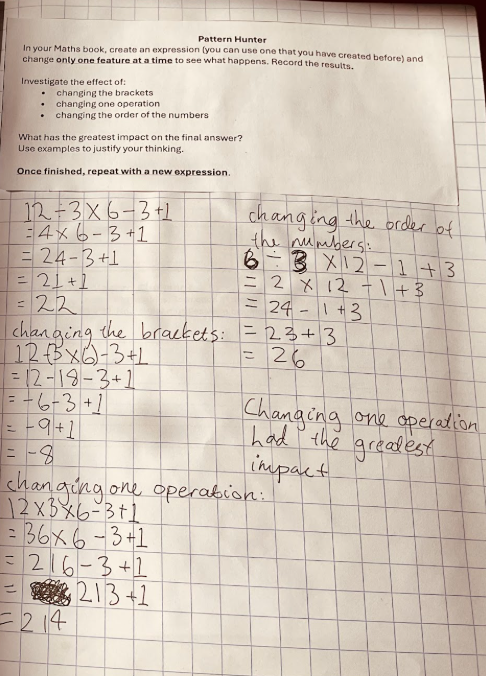 Pattern Hunter
In your Maths book, create an expression (you can use one that you have created before) and
change only one feature at a time to see what happens. Record the results.
Investigate the effect of:
• changing the brackets
• changing one operation
• changing the order of the numbers
What has the greatest impact on the final answer?
Use examples to justify your thinking.
Once finished, repeat with a new expression.
12÷3×6-3+1
=4×6-3+1
=24-3+1
=21+1
=22
changing the brackets:
12-(3×6)-3+1
=12-18-3+1
=-6-3+1
=-9+1
=-8
changing one operation:
12×3×6-3+1
=36×6-3+1
=216-3+1
=213+1
=214
changing the order of
the numbers:
6÷3×12-1+3
=2×12-1+3
=24-1+3
=23+3
=26
Changing one operation
had the greatest
impact